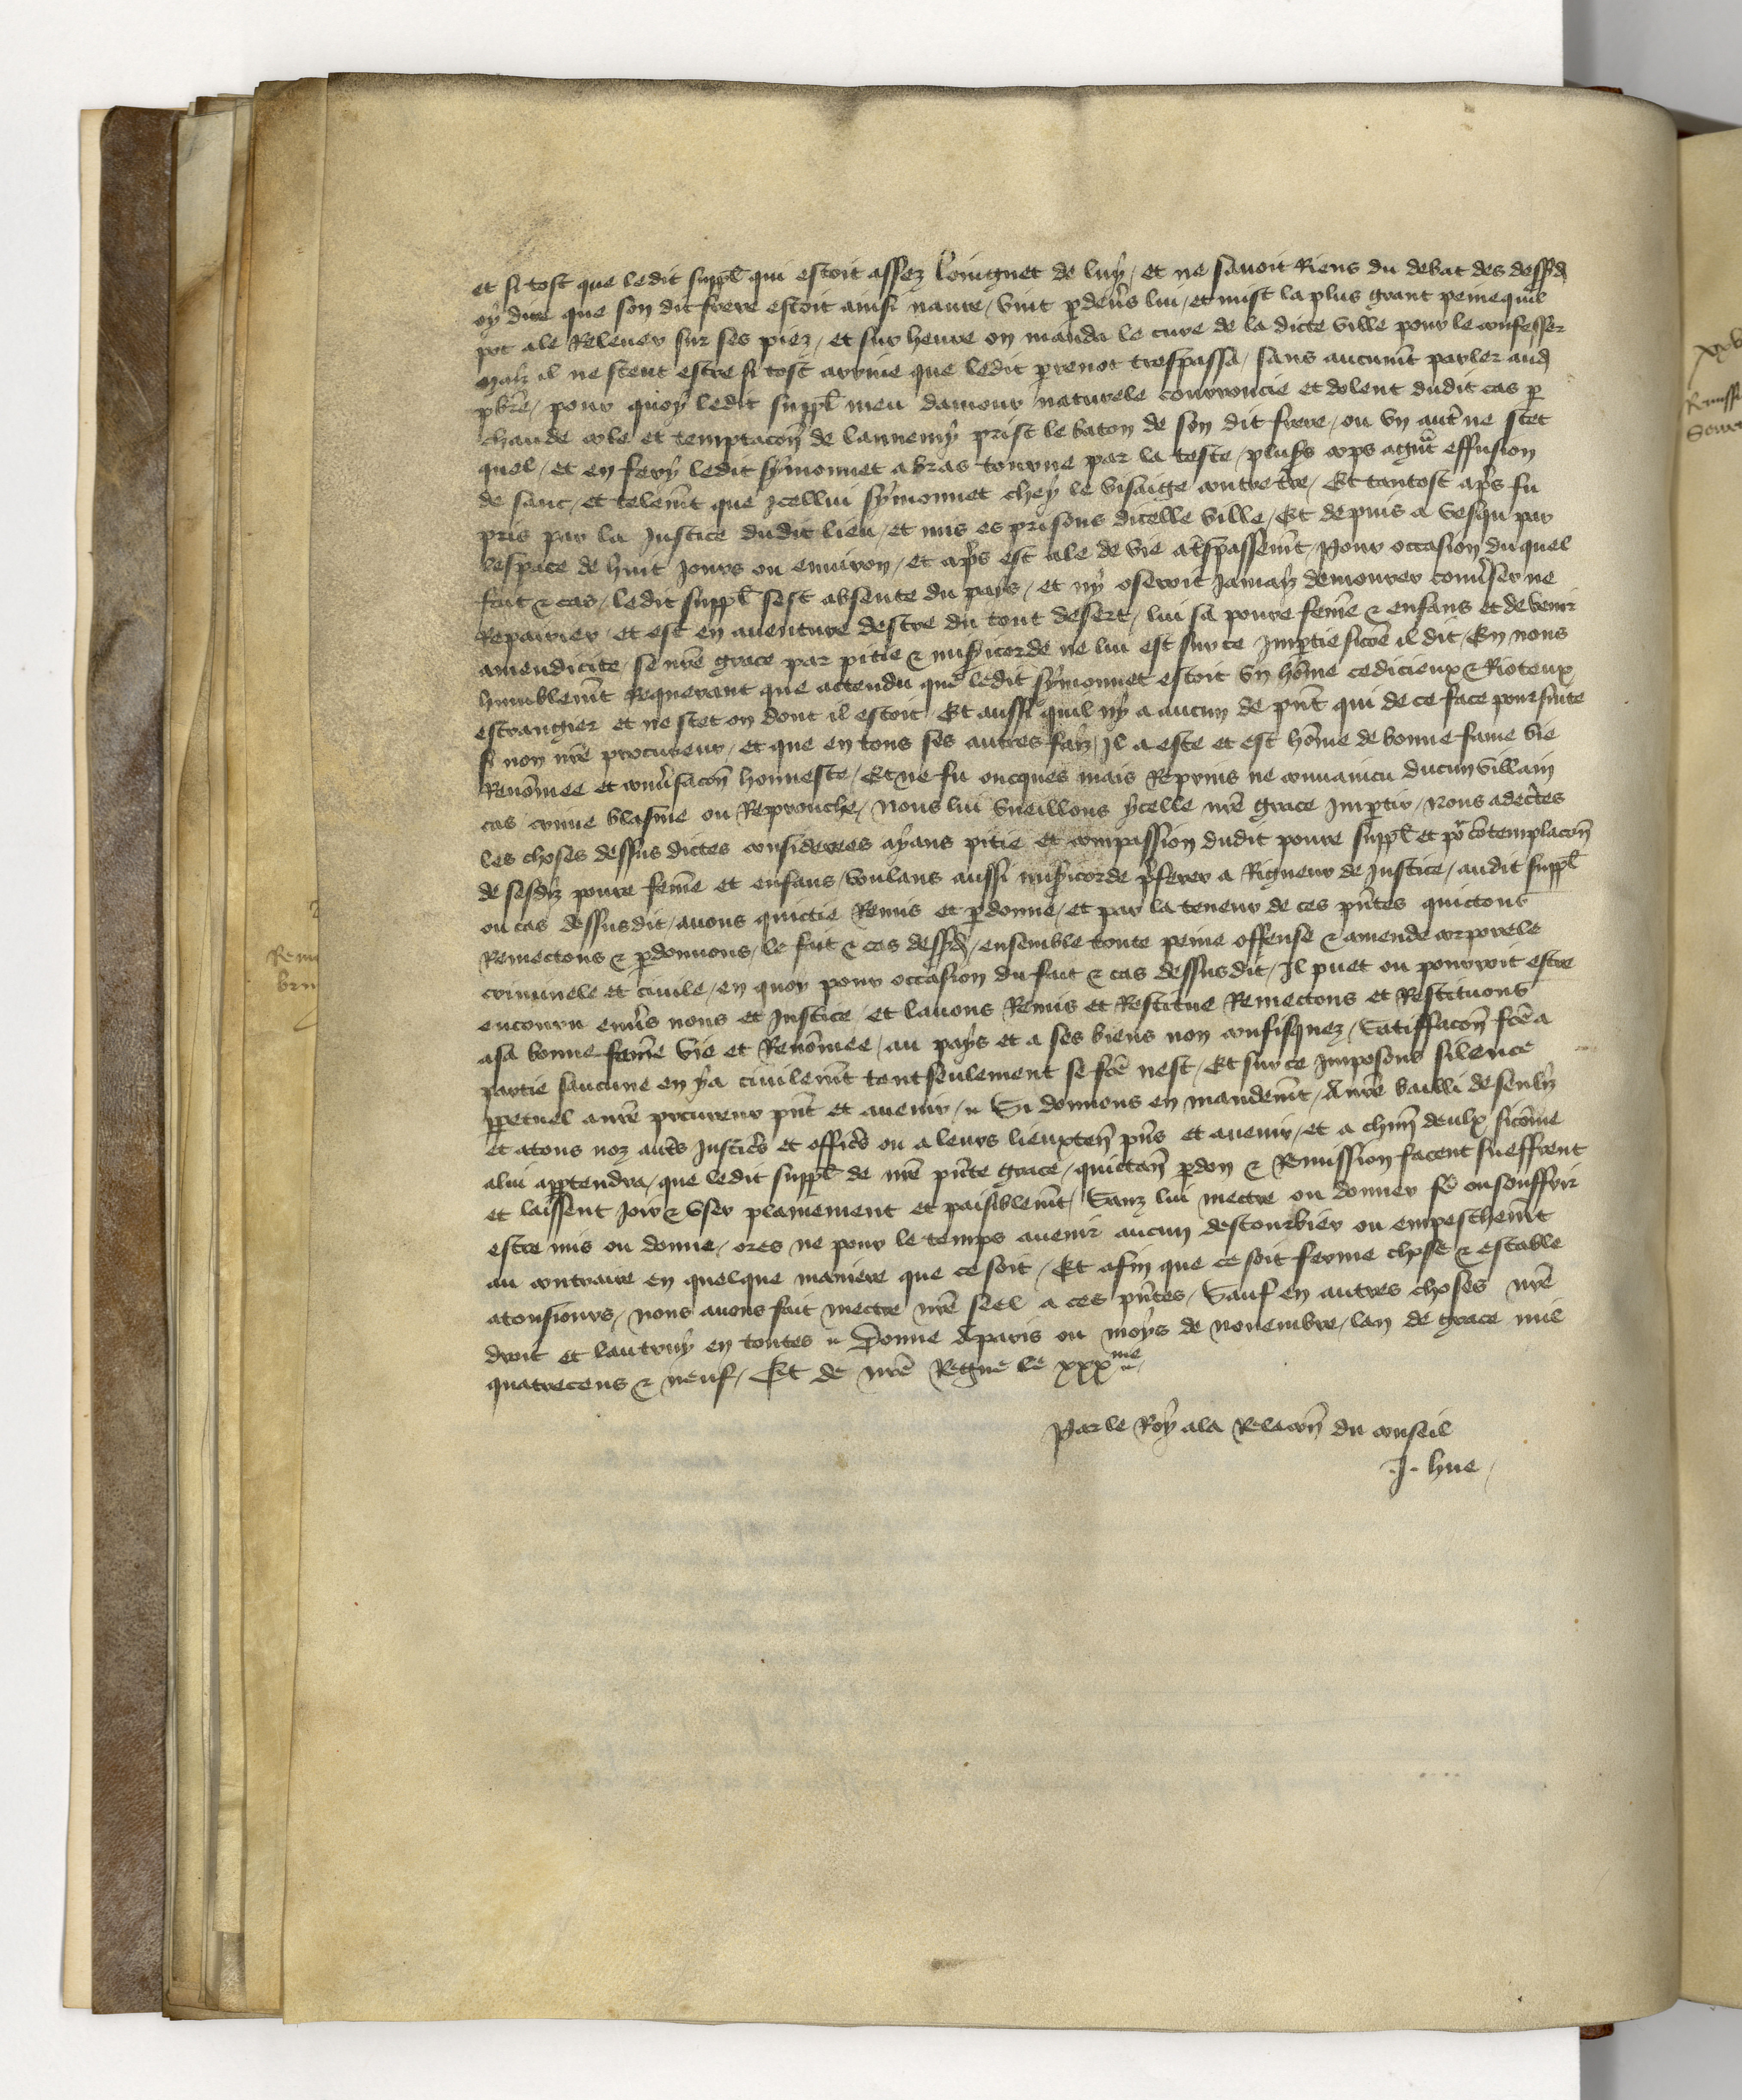 et si tost que ledit suppl̃ qui estoit assez loingnet de luy / et ne savoit Riens du debat des dessusd̃
oy dire que son dit frere estoit ainsi navre / vint p̱deuers lui / et mist la plus grant peine quil
pot a le Relever sur ses piez / et sur heure on manda le cure de la dicte ville pour le confesser
Maiz il ne sceut estre si tost arrivé que ledit perrenot trespassa / sans aucunem̃t parler aud̃
pbr̃e / pour quoy ledit suppl̃ meu damour naturele courroucie et dolent dudit cas p̱
chaude cole et temptacoñ de lannemy prist le baton de son dit frere / ou vn autr̃e ne scet
quel / et en fery ledit symonnet a bras tourne par la teste / plus̃rs cops a grãt effusion
de sanc / et telem̃t que ycellui symonnet chey le visaige contre tr̃e / Et tantost apr̃s fu
pris par la Justice dudit lieu / et mis es prisons dicelle ville / Et depuis a vesqu par
lespace de huit Jours ou environ / et apr̃s est ale de vie a tr̃spassem̃t / Pour occasion duquel
fait & cas / ledit suppl̃ sest absente du pays / et ny oseroit Jamaiz demourer conũser ne
Repairier / et est en aventure destre du tout desert / lui sa povre fem̃e & enfans et de venir
a mendicite / se nr̃e grace par pitie & mis̃icorde ne lui est sur ce Imp̱tie sicõe il dit / En nous
humblem̃t Requerant que attendu que ledit symonnet estoit vn hom̃e cedicieux & Rioteux
estrangier et ne scet on dont il estoit / Et aussi quil ny a aucun de pñt qui de ce face poursuite
si non nr̃e procureur / et que en tous ses autres faiz / Il a este et est hõme de bonne fame vie
Renõmee et conũsacoñ honneste / Et ne fu oncques mais Reprins ne convaincu daucun villain
cas crime blasme ou Reprouche / nous lui vueillons ycelle nr̃e grace Imp̱tir / Nous adecertes
les choses dessus dictes considerees ayans pitie et compassion dudit povre suppl̃ et po͛ cõtemplacoñ
de sesdiz povre fem̃e et enfans / voulans aussi mis̃icorde pr̃ferer a Rigueur de Justice / audit suppl̃
ou cas dessusdit / avons quictie Remis et p̱donne / et par la teneur de ces pñtes quictons
Remectons & p̱donnons / le fait & cas dessusd̃ / ensemble toute peine offense & amende corporele
criminele et civile / en quoy pour occasion du fait & cas dessusdit / Il puet ou pourroit estre
encouru enũs nous et Justice / et lavons Remis et Restitue Remectons et Restituons
a sa bonne fame vie et Renõmee / au pays et a ses biens non confisquez / Satiffacoñ fc̃e a
partie saucune en ya civilem̃t tant seulement se fc̃e nest / Et sur ce Imposons silence
p̱petuel a nr̃e procureur pñt et avenir / Si donnons en mandem̃t / A nr̃e bailli de senliz
et a tous noz autr̃s Justic̃s et offic̃s ou a leurs lieuxteñ pñs et avenir / et a chũn deulx sicõme
a lui app̱tendra / que ledit suppl̃ de nr̃e pñte grace / quictañ p̱don & Remission facent sueffrent
et laissent Joir & vser plainement et paisiblem̃t / Sanz lui mectre ou donner ou souffrir
estre mis ou donne / ores ne pour le temps avenir aucun destourbier ou empeschem̃t
au contraire en quelque maniere que ce soit / Et afin que ce soit ferme chose & estable
a tousiours / nous avons fait mectre nr̃e seel a ces pñtes / Sauf en autres choses nr̃e
droit et lautruy en toutes Donne A paris ou moys de novembre / lan de grace mil
quatrecens & neuf / Et de nr̃e Regne le xxx.me
Par le Roy a la Relacoñ du conseil
.J. hue